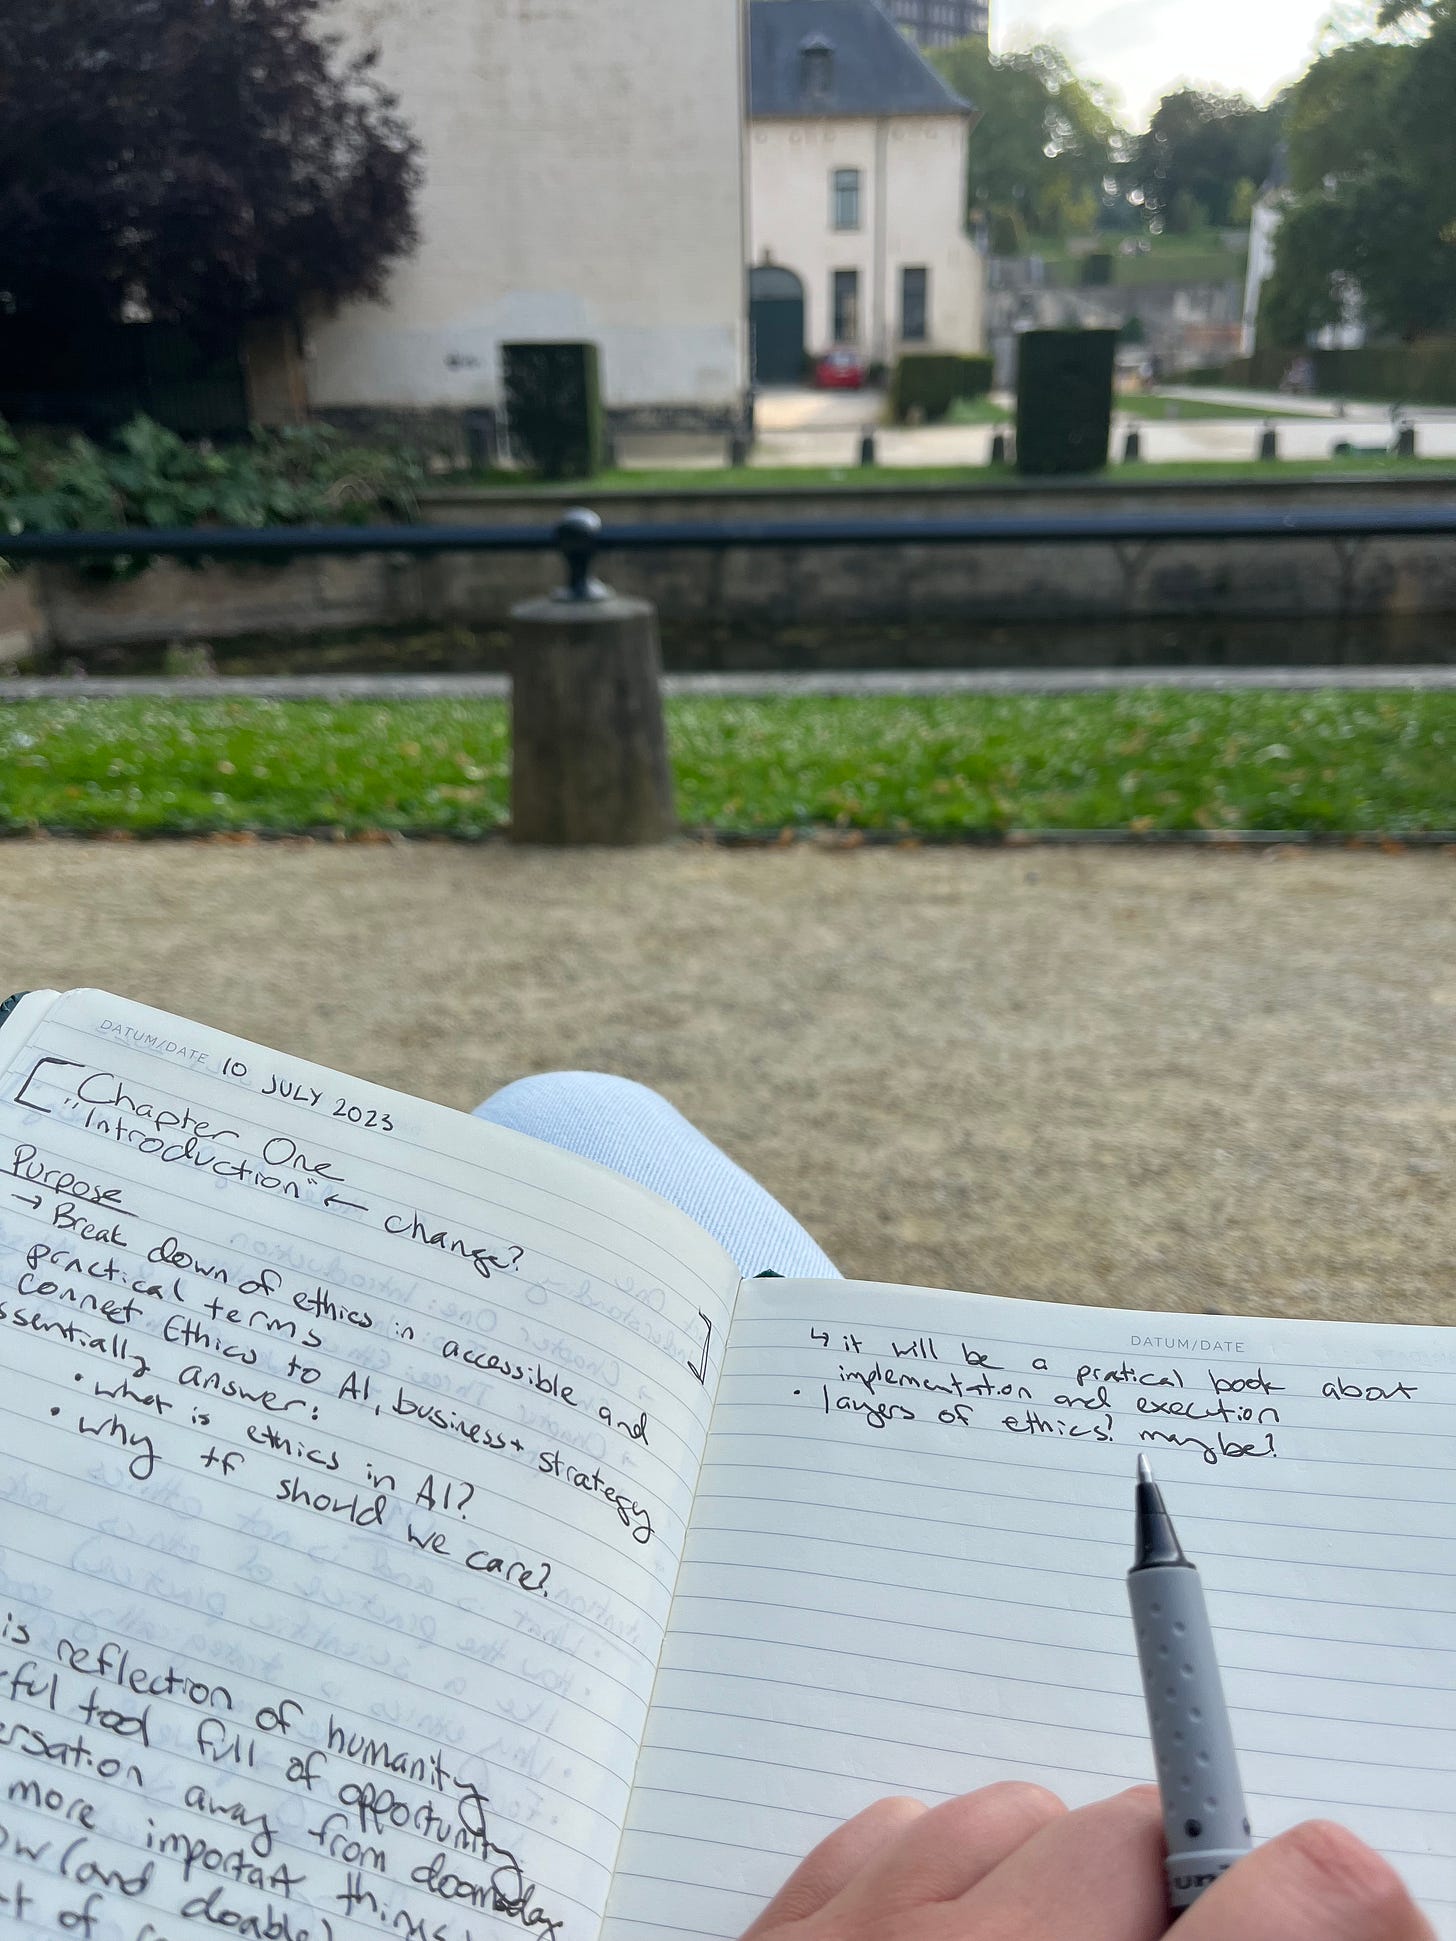 DATUM/DATE 10 JULY 2023
Chapter One
"Introduction" ← change?
Purpose
→ Break down of ethics in accessible and
practical terms
Connect Ethics to AI, business + strategy
ssentially answer:
• what is ethics in AI?
• why tf should we care?
is reflection of humanity
ful tool full of opportunity
ersation away from doomsday
more important things
ow (and doable)
t of
DATUM/DATE
↳ it will be a pratical book about
implementation and execution
• layers of ethics? maybe?
uni